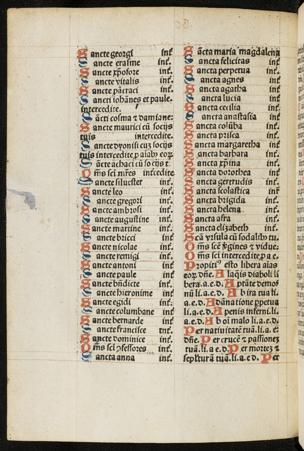 Sancte georgi inť.
Sancte erasme inť.
Sancte xp̄ofore inť.
Sancte vitalis inť.
Sancte pācraci inť.
Sancti iohānes et paule.
intercedite.
Sācti cosma & damiane:
Sancte maurici cū socijs
tuis intercedite.
Sancte dyonisi cū socijs
tuis intercedite
Sancte siluester inť.
Sancte leo inť.
Sancte gregori inť.
Sancte ambrosi inť.
Sancte augustine inť.
Sancte martine inť.
Sancte bricci inť.
Sancte nicolae inť.
Sancte remigi inť.
Sancte antoni inť.
Sancte paule inť.
Sancte bn̄dicte inť.
Sancte hieronime inť.
Sancte egidi inť.
Sancte columbane inť.
Sancte bernarde inť.
Sancte francisce inť.
Sancte dominice inť.
Om̄s sc̄i ꝯfessores inť.
Sancta anna inť.
Sācta maria magdalena
Sancta felicitas inť.
Sancta perpetua inť.
Sancta agnes inť.
Sancta agatha inť.
Sancta lucia inť.
Sancta cecilia inť.
Sancta anastasia inť.
Sancta colūba inť.
Sancta prisca inť.
Sancta margaretha inť.
Sancta barbara inť.
Sancta xp̄ina inť.
Sancta dorothea inť.
Sancta gertrudis inť.
Sancta scolastica inť.
Sancta brigida inť.
Sancta helena inť.
Sancta afra inť.
Sancta elizabeth inť.
Scā vrsula cū sodalib⁹ tu.
Om̄s sc̄e v̄gines ⁊ vidue:
Om̄s sc̄i intercedite p̱ a e.
Propiti⁹ esto libera nos
eos dn̄e. Ab īsidijs diaboli li
bera. a. e. d. A
A dānatione ppetua
li. a. e. d. A penis inferni. li.
a. e. d. Ab oī malo li. a. e. d.
Per natiuitatē tuā. li. a. e.
dn̄e. Per crucē & passionez
tuā. li. a. e. d. Per mortez &
sepliturā tuā. li. a. e. d. Per